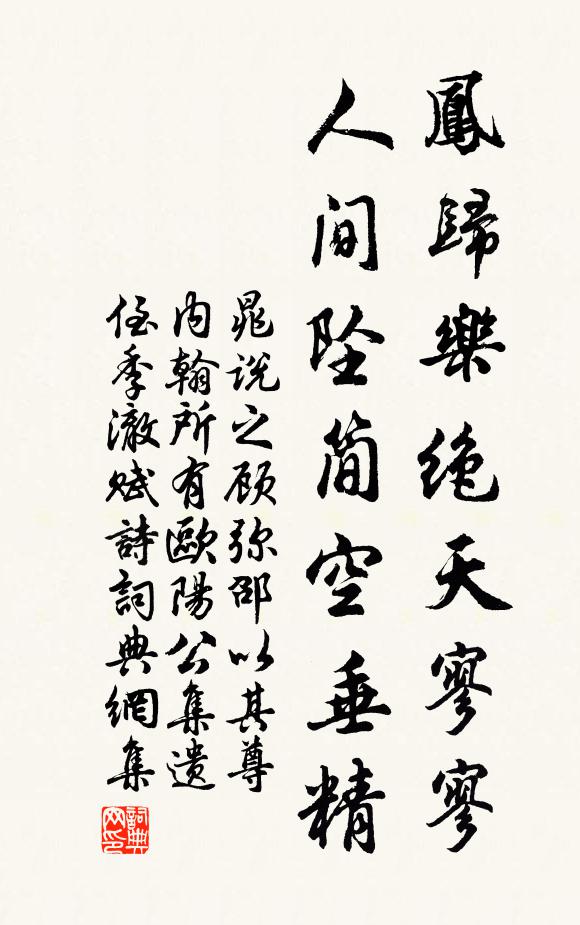 鳳歸樂绝天寥寥
人间坠简空垂精
晁说之顾弥邵以其尊
内翰所有歐陽公集遗
侄季澈赋詩詞典網集
詞典
网印